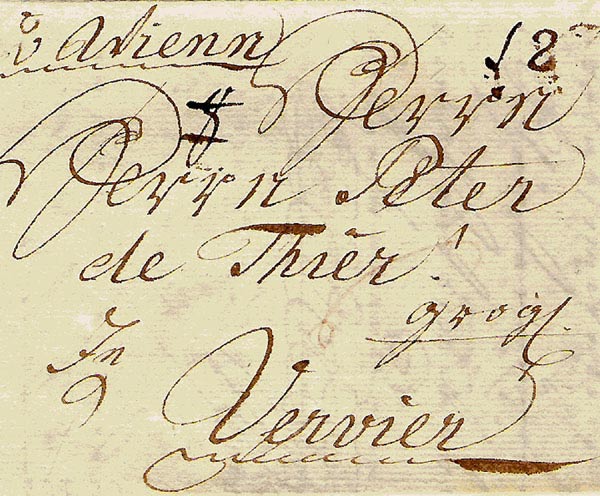 v Wienn
18
Herrn
Herrn Peter
de Thier!
In
Vervier